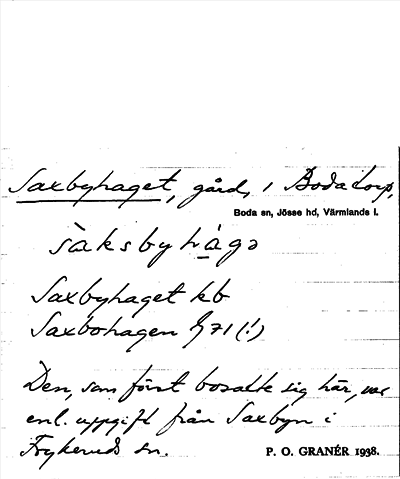 Saxbyhaget, gård, i Boda torp,
Boda sn, Jösse hd, Värmlands l.
sàksbyhàgə
Saxbyhaget kb
Saxbohagen 71 (!)
Den, som först bosatte sig här, var
enl. uppgift från Saxbyn i
Frykeruds sn.
P. O. GRANÉR 1938.